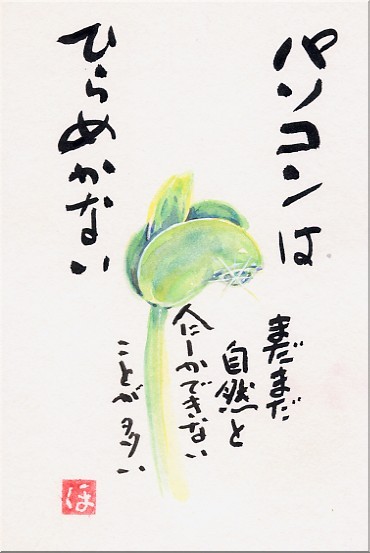 パソコンは
ひらめかない
まだまだ
自然と
人にしかできない
ことが多い
ほ